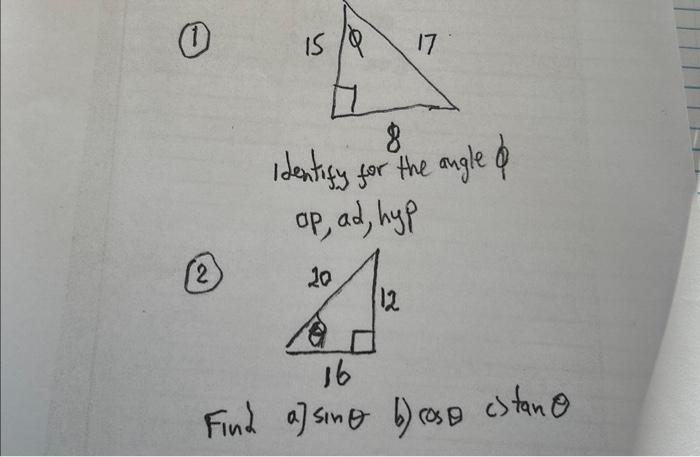 ①
15 ϕ 17
8
Identify for the angle ϕ
op, ad, hyp
②
20
12
θ
16
Find a] sinθ b) cosθ c) tanθ